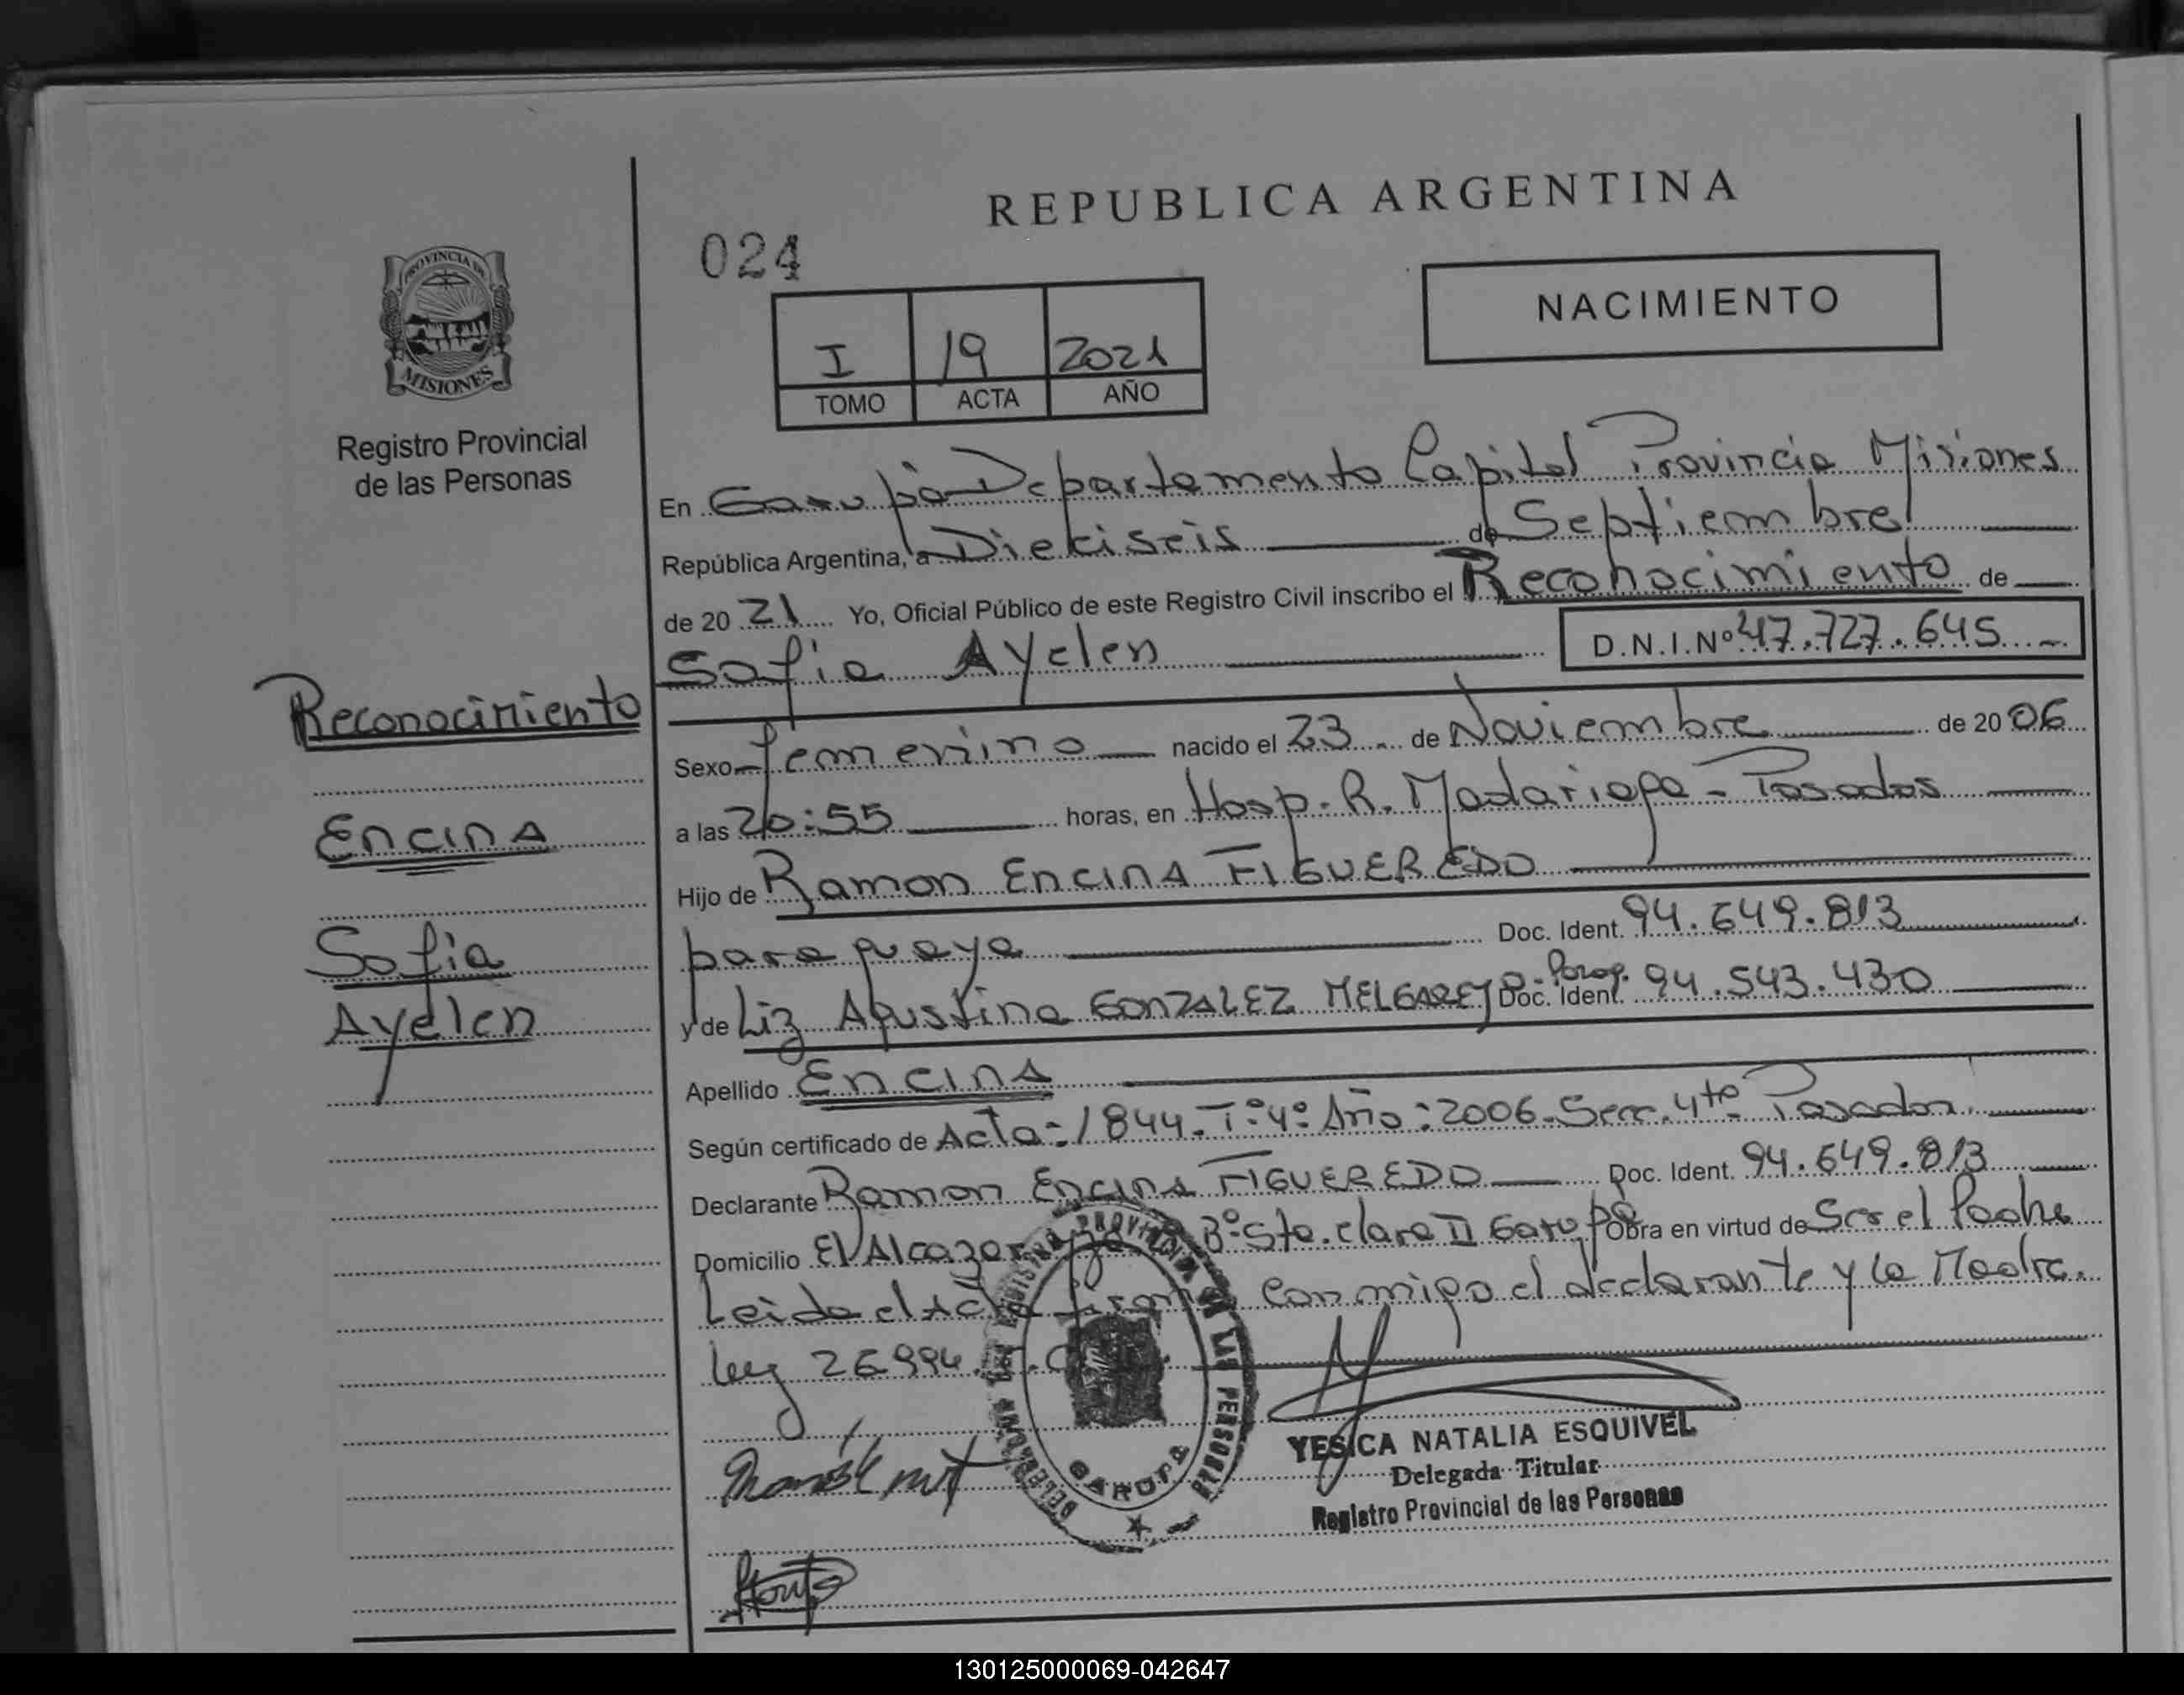 REPUBLICA ARGENTINA
024
NACIMIENTO
I 19 2021
TOMO ACTA AÑO
PROVINCIA DE
MISIONES
Registro Provincial
de las Personas
En Garupá Departamento Capital Provincia Misiones
República Argentina, a Dieciseis de Septiembre
de 20 21 Yo, Oficial Público de este Registro Civil inscribo el Reconocimiento de
Sofia Ayelen D.N.I.Nº 47.727.645
Reconocimiento
Sexo femenino nacido el 23 de Noviembre de 20 06
a las 20:55 horas, en Hosp. R. Madariaga - Posadas
Encina
Hijo de Ramon Encina FIGUEREDO
Sofia
paraguaya Doc. Ident. 94.649.813
Ayelen
y de Liz Agustina GONZALEZ MELGAREJO Parag. Doc. Ident. 94.543.430
Apellido Encina
Según certificado de Acta: 1844. Tº: 4º Año: 2006. Secc. 4ta Posadas
Declarante Ramon Encina FIGUEREDO Doc. Ident. 94.649.813
Domicilio El Alcazar Bº Sta. Clara II Garupá Obra en virtud de Ser el Padre
Leida el Acta firma conmigo el declarante y la Madre.
Ley 26994.
PROVINCIAL DE LAS PERSONAS
GARUPA
YESICA NATALIA ESQUIVEL
Delegada Titular
Registro Provincial de las Personas
130125000069-042647